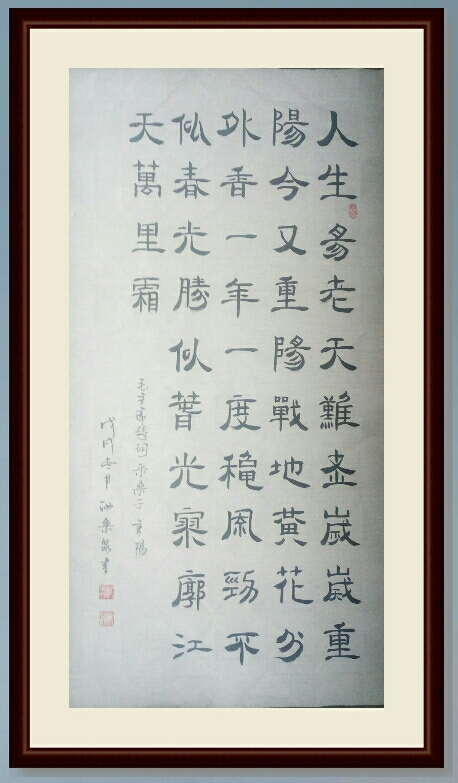 人生易老天難老歲歲重
陽今又重陽戰地黃花分
外香一年一度穐風勁不
似春光勝似春光寥廓江
天萬里霜
毛主席詩詞 采桑子 重陽
戊戌冬月 書